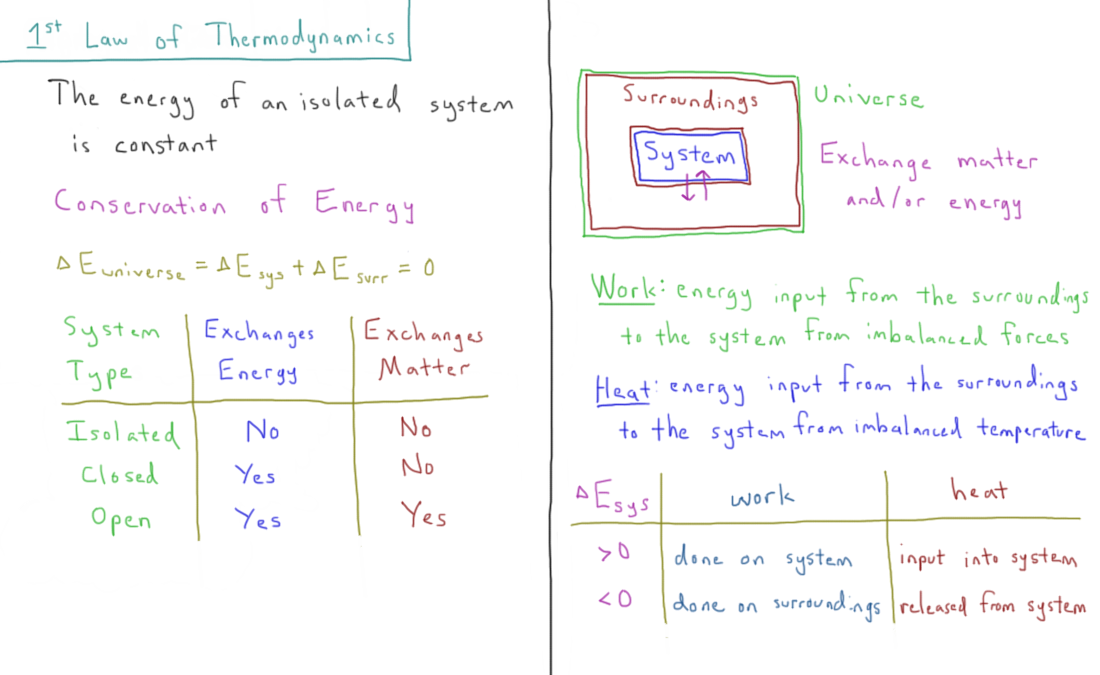 1st Law of Thermodynamics
The energy of an isolated system
is constant
Conservation of Energy
Δ E universe = Δ E sys + Δ E surr = 0
System Type | Exchanges Energy | Exchanges Matter
Isolated | No | No
Closed | Yes | No
Open | Yes | Yes
Surroundings
System
Universe
Exchange matter
and/or energy
Work: energy input from the surroundings
to the system from imbalanced forces
Heat: energy input from the surroundings
to the system from imbalanced temperature
Δ E sys | work | heat
>0 | done on system | input into system
<0 | done on surroundings | released from system